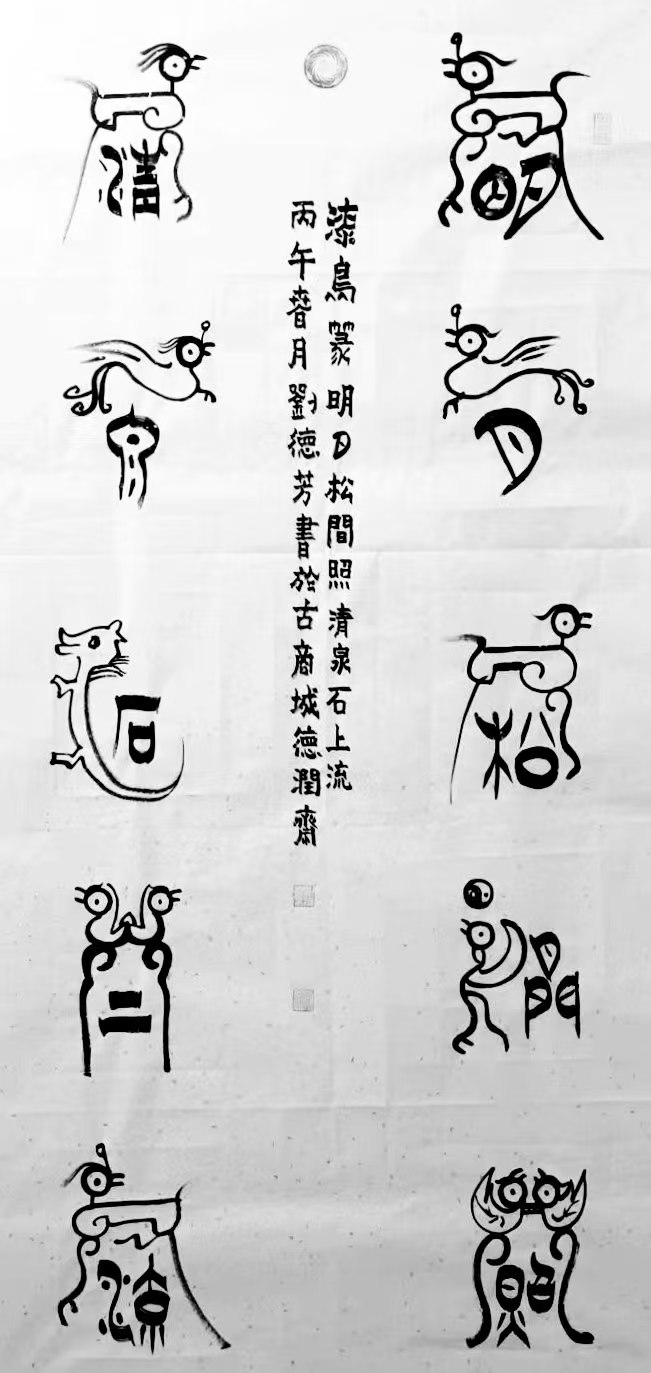 明月松間照
漆鳥篆明月松間照清泉石上流
丙午春月劉德芳書於古商城德潤齋
清泉石上流